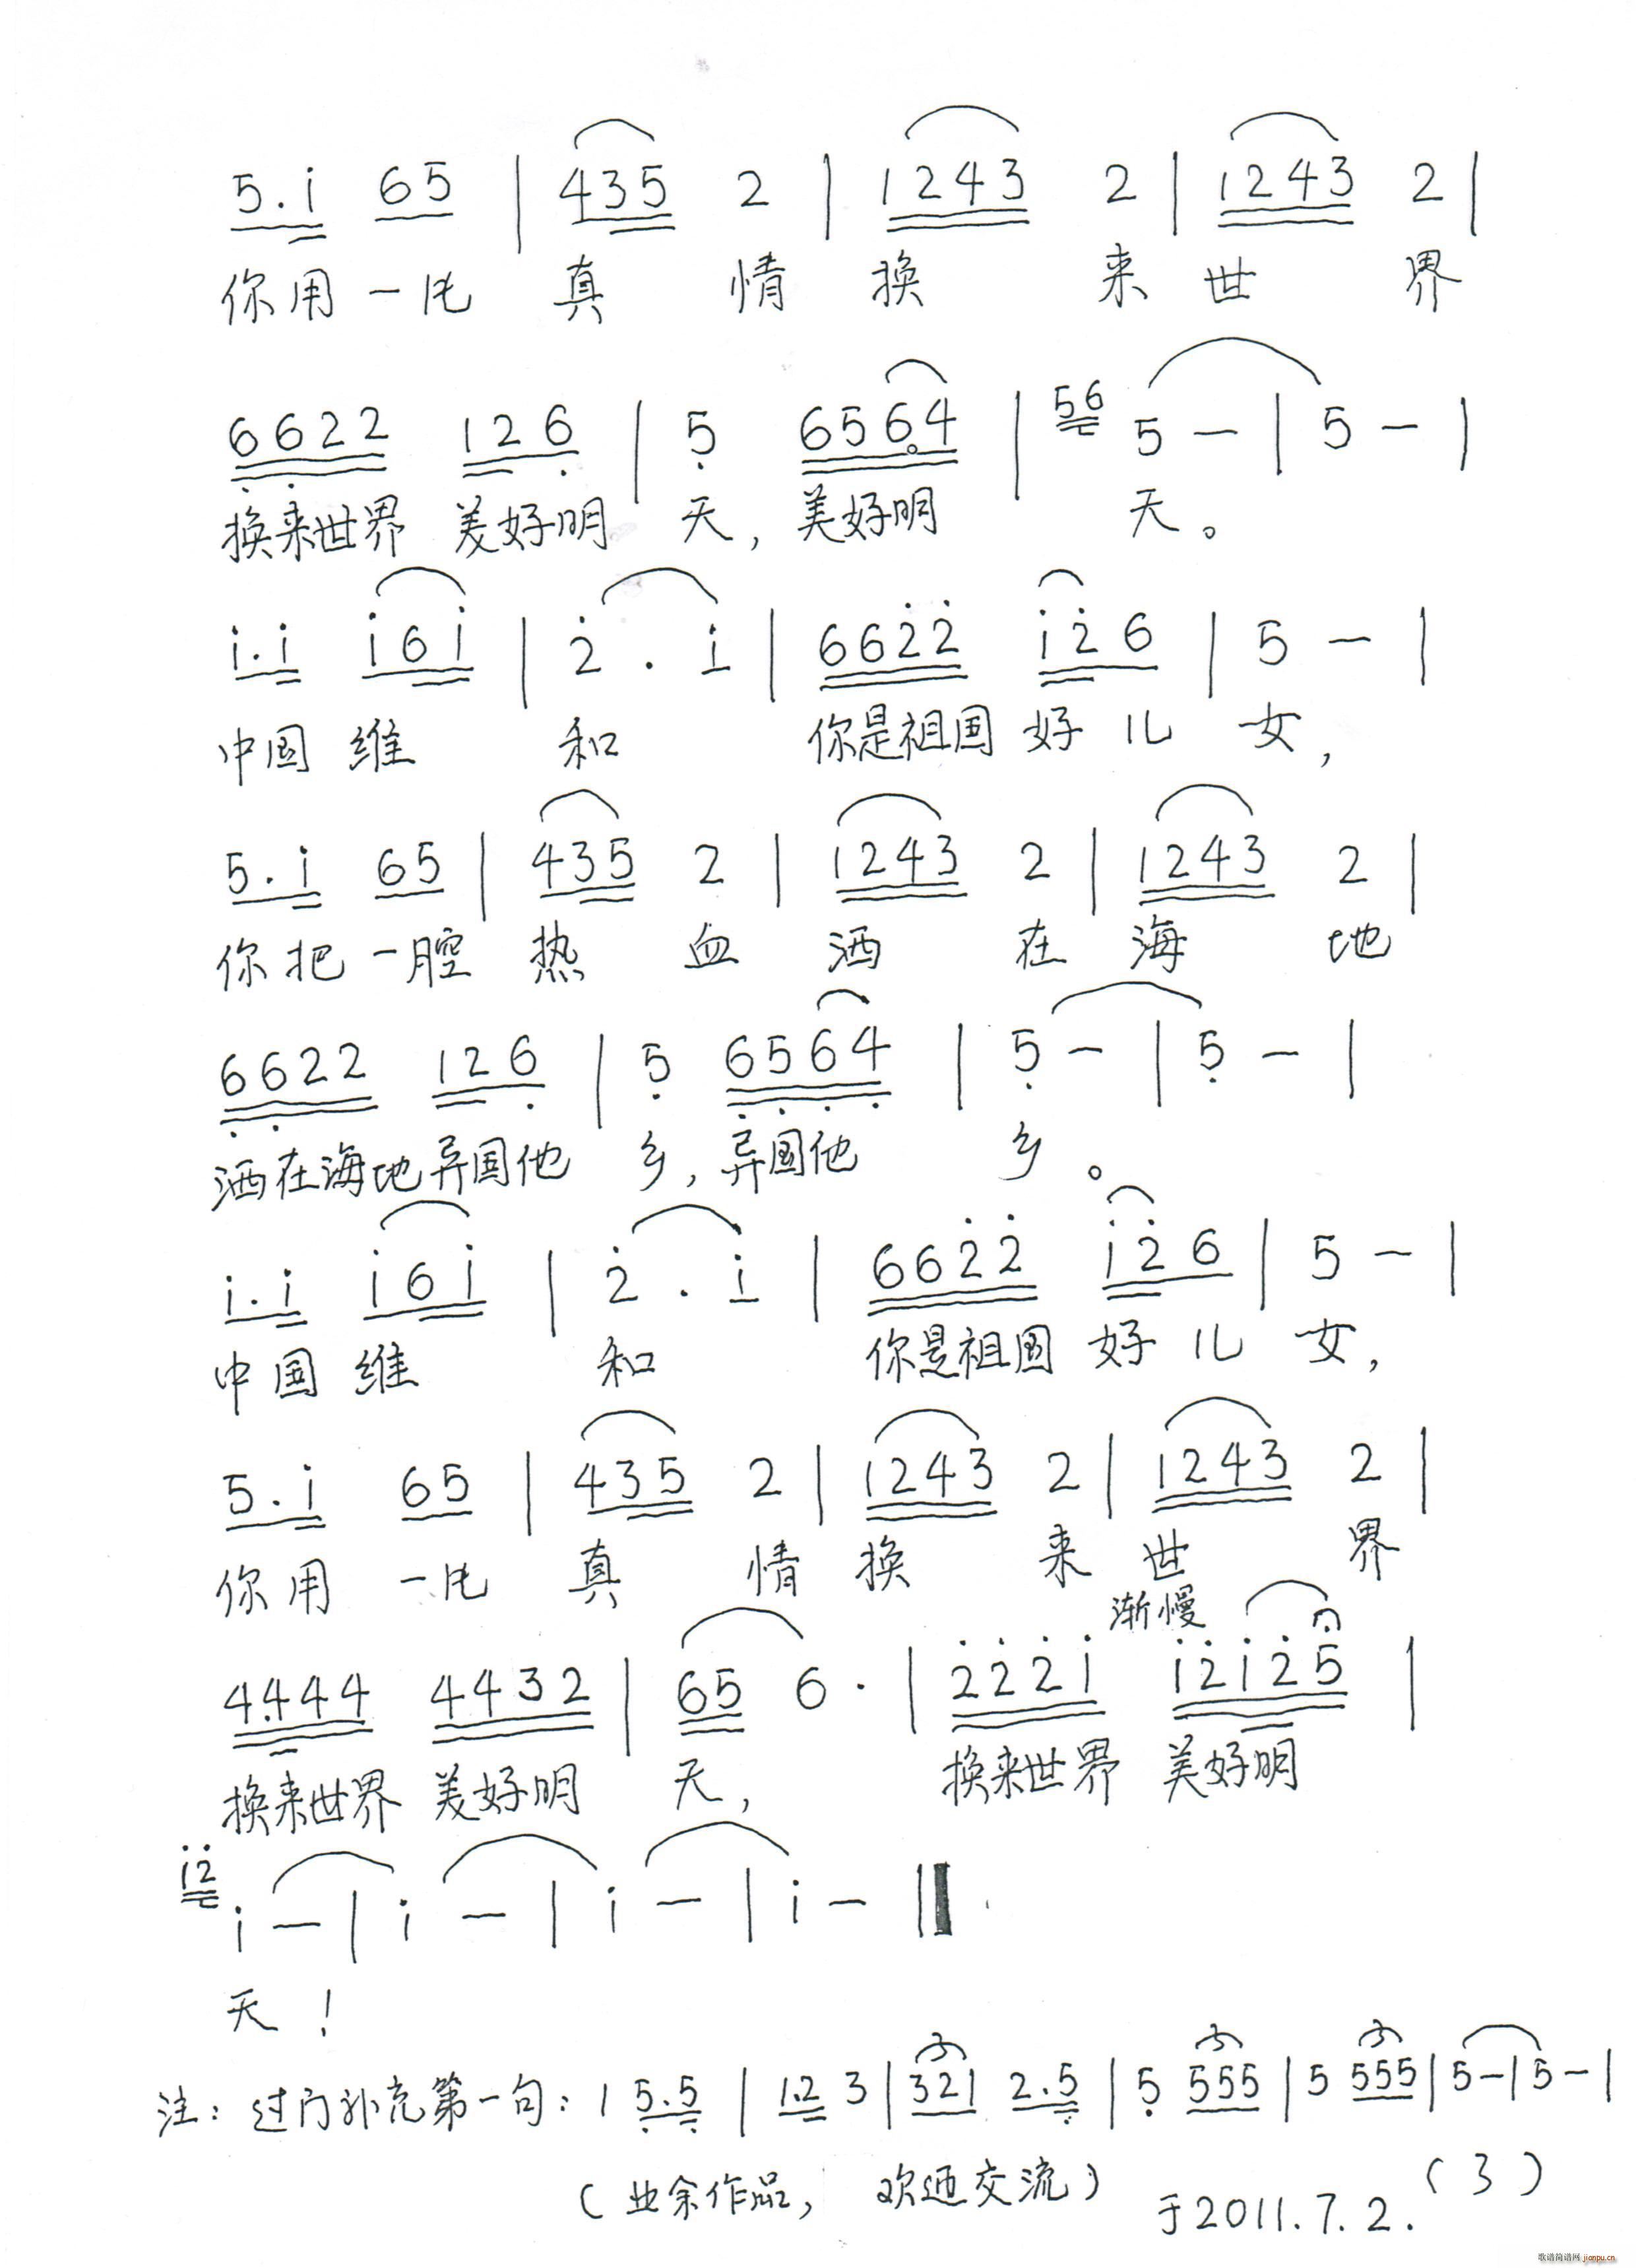 5.i 65 | 435 2 | 1243 2 | 1243 2 |
你用一片 真 情 换 来 世 界
6622 126 | 5 6564 | 56 5 — | 5 — |
换来世界 美好明 天，美好明 天。
i.i i6i | 2̇ . i | 662̇2̇ i2̇6 | 5 — |
中国 维 和 你是祖国 好 儿 女，
5.i 65 | 435 2 | 1243 2 | 1243 2 |
你把一腔 热 血 洒 在 海 地
6622 126 | 5 6564 | 5 — | 5 — |
洒在海地异国他 乡，异国他 乡。
i.i i6i | 2̇ . i | 662̇2̇ i2̇6 | 5 — |
中国 维 和 你是祖国 好 儿 女，
5.i 65 | 435 2 | 1243 2 | 1243 2 |
你用 一片 真 情 换 来 世 界
渐慢
4.444 4432 | 65 6. | 2̇2̇2̇i i2̇i2̇5̇ |
换来世界 美好明 天，换来世界 美好明
i2̇ i — | i — | i — | i — ‖
天！
注：过门补充第一句：1 5.5 | 1.2 3 | 321 2.5 | 5 555 | 5 555 | 5 — | 5 — |
3 3 3
（业余作品，欢迎交流） 于2011.7.2. （3）
歌谱简谱网 jianpu.cn